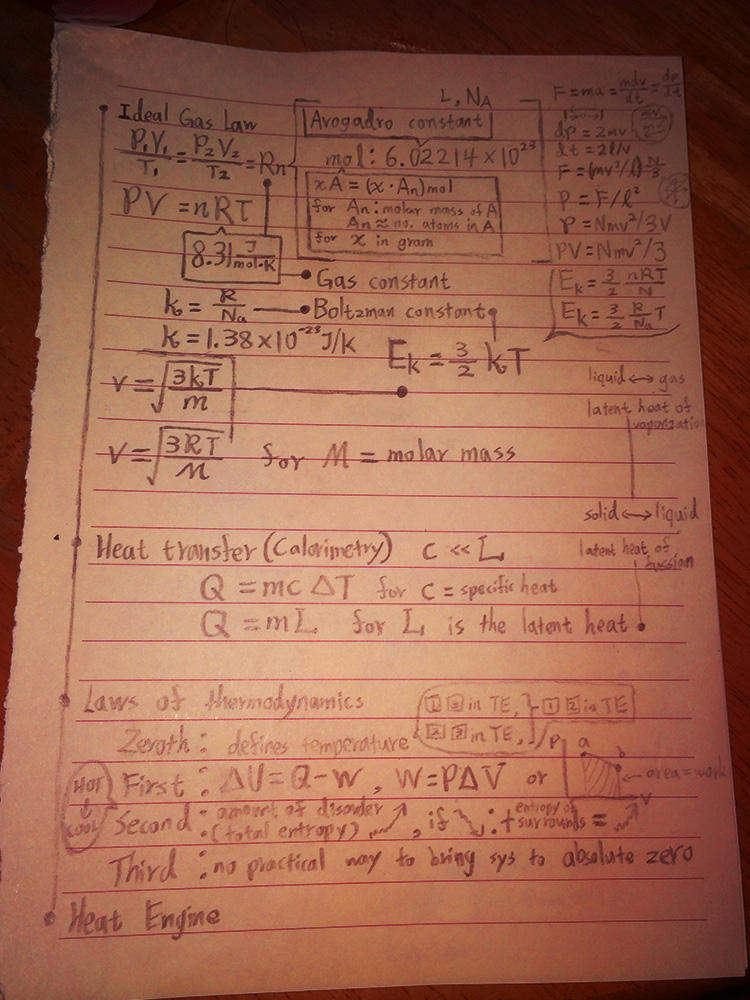 L, NA
Ideal Gas Law
P₁V₁/T₁ = P₂V₂/T₂ = Rn
Avogadro constant
mol: 6.02214 × 10²³
xA = (x · An) mol
for An: molar mass of A
An ≈ no. atoms in A
for x in gram
PV = nRT
8.31 J/mol·K
Gas constant
k = R/Na
Boltzman constant
k = 1.38 × 10⁻²³ J/K
Ek = 3/2 kT
v = √(3kT/m)
v = √(3RT/M) for M = molar mass
F = ma = mdv/dt = dp/dt
dp = 2mv
dt = 2l/v
F = (mv²/l) N/3
P = F/l²
P = Nmv²/3V
PV = Nmv²/3
Ek = 3/2 nRT/N
Ek = 3/2 R/Na T
liquid ↔ gas
latent heat of
vaporization
solid ↔ liquid
latent heat of
fussian
Heat transfer (Calorimetry) c << L
Q = mc ΔT for c = specific heat
Q = mL for L is the latent heat
Laws of thermodynamics
1 3 in TE,
2 3 in TE,
1 2 in TE
Zeroth: defines temperature
First: ΔU = Q - W, W = PΔV or
P
a
b
V
area = work
HOT
↓
COOL
Second: amount of disorder
(total entropy) ↗, if ↘: + entropy of
surrounds = ↗
Third: no practical way to bring sys to absolute zero
Heat Engine